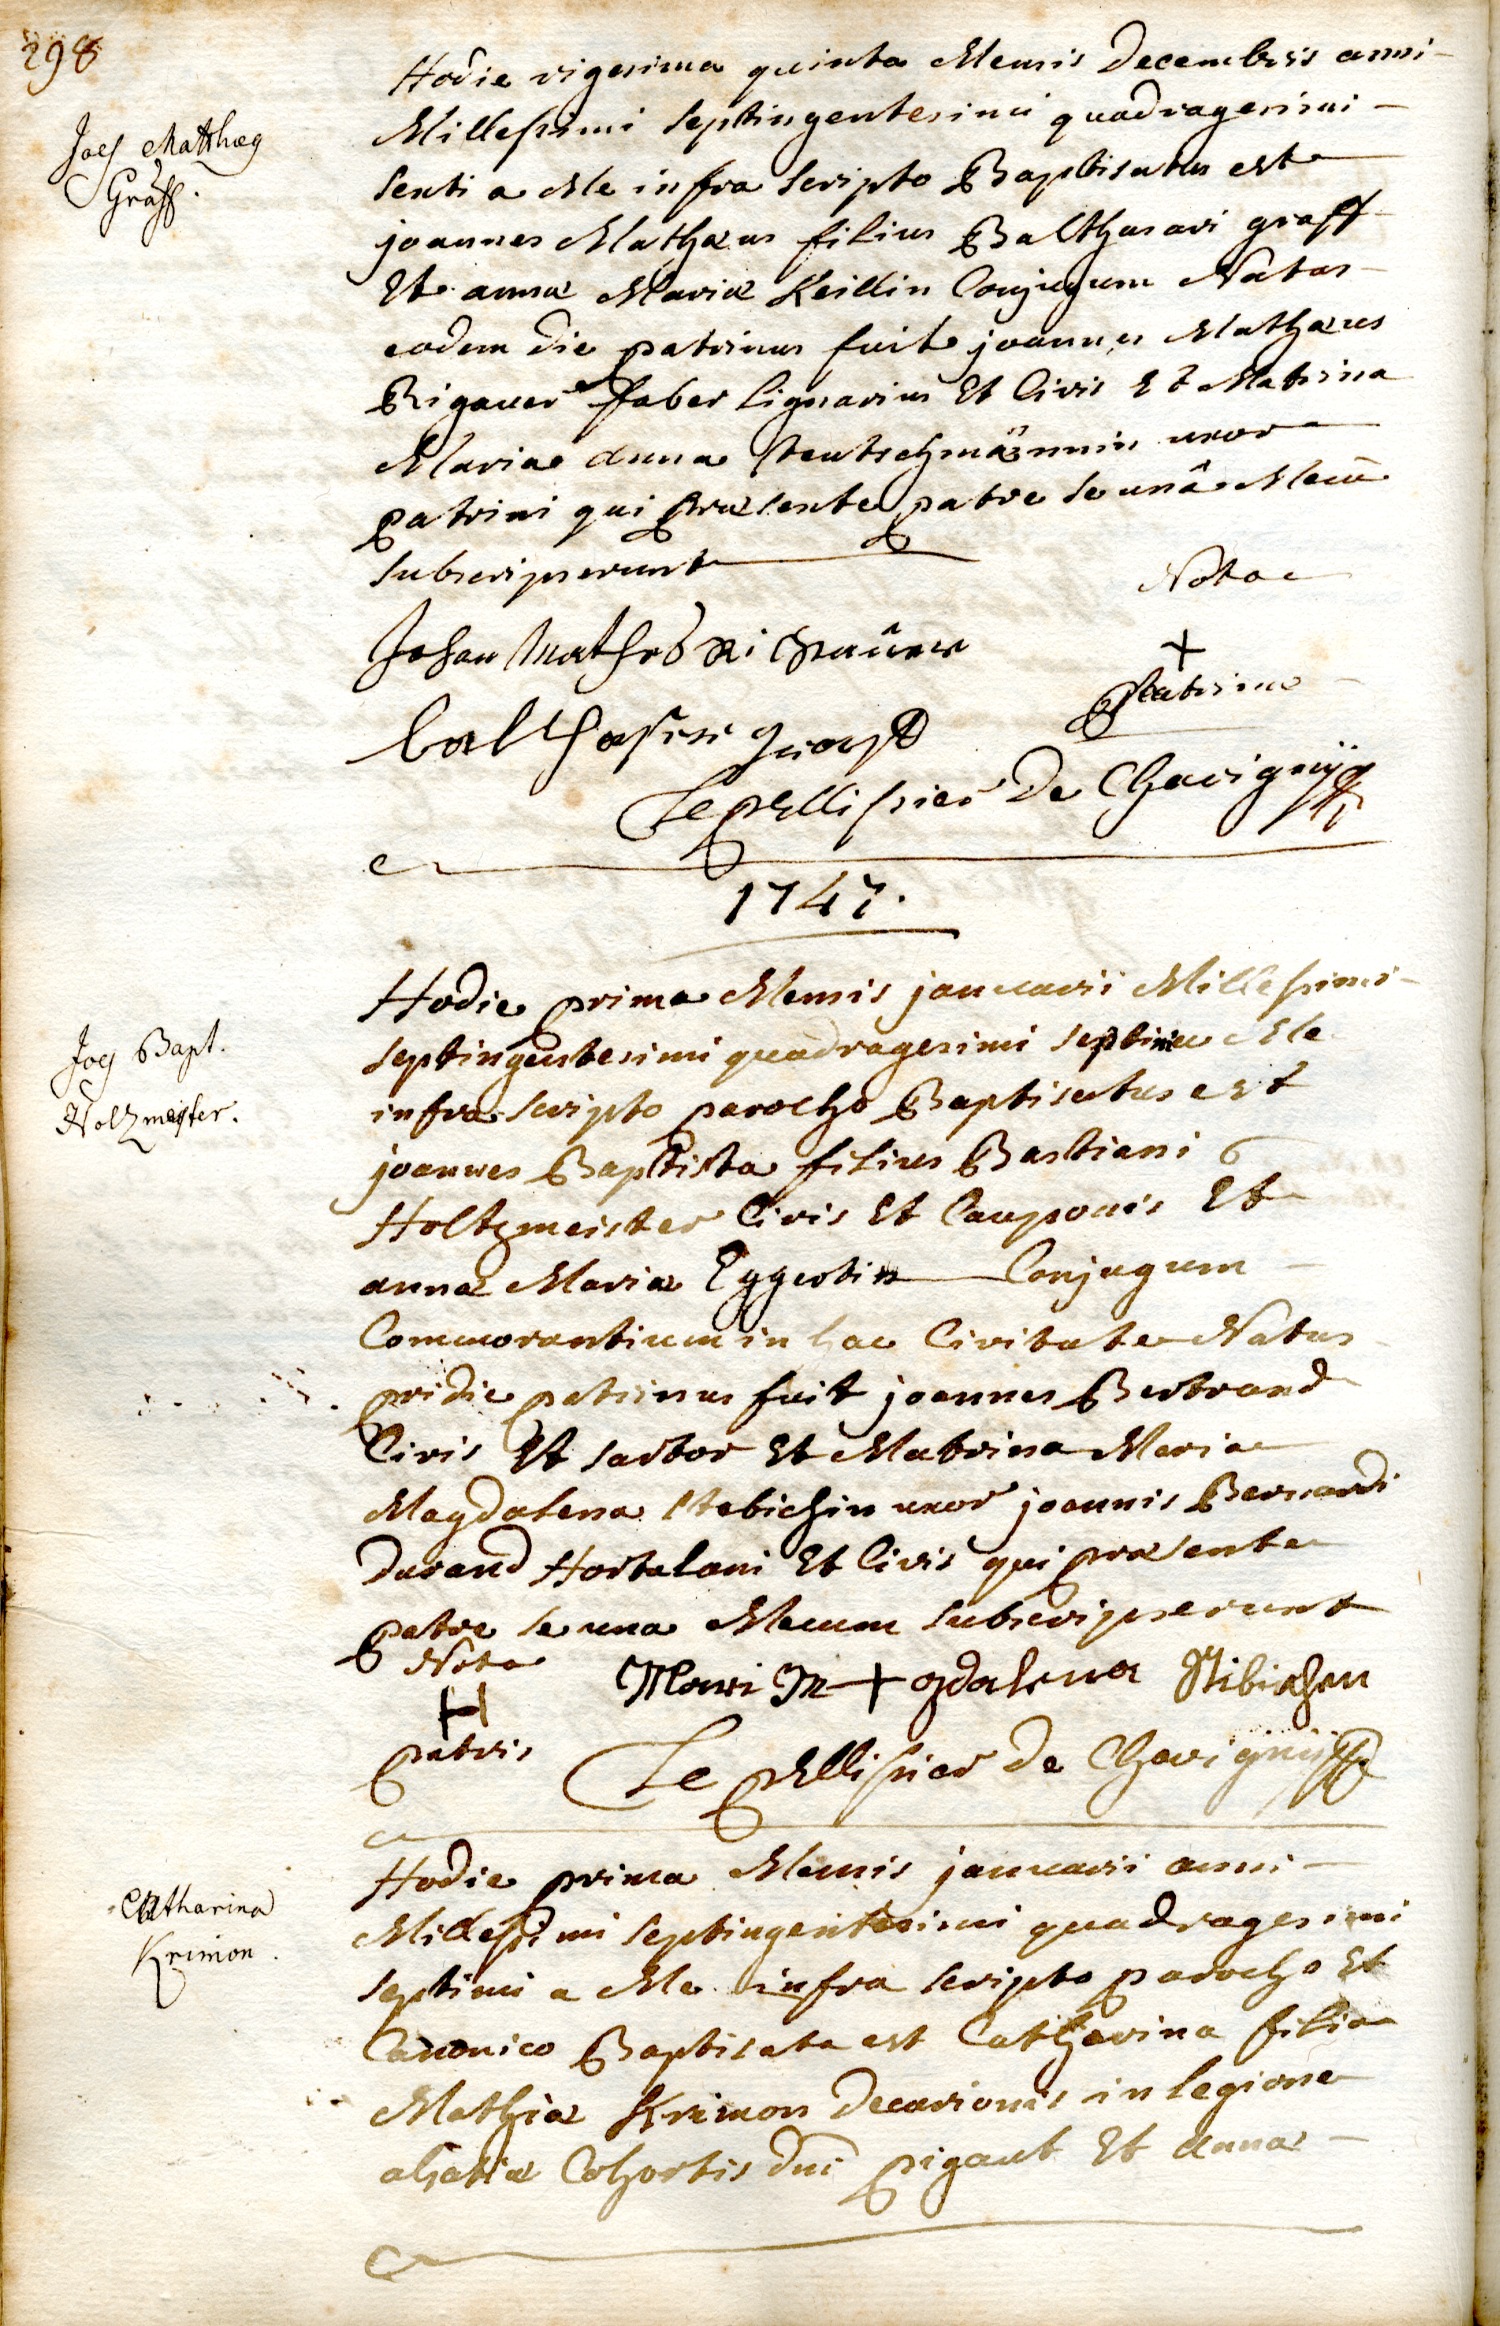 298
Joes Matthaeg
Graff.
Hodie vigesima quinta Mensis Decembris anni
Millesimi septingentesimi quadragesimi
sexti a Me infra scripto Baptisatus est
joannes Mathæus filius Balthasari graff
Et annæ Mariæ Keillin Conjugum Natus
eodem die patrinus fuit joannes Mathæus
Rigauer faber lignarius Et Civis Et Matrina
Maria Anna teutschmännin uxor
patrini qui præsente patre se unâ Mecū
subscripserunt
Nota
+
Matrinæ
Johan Mathes Ri
balthasser graff
Le pellissier De Chavignÿ
1747.
Joes Bapt.
Holzmeister.
Hodie prima Mensis januarii Millesimi
septingentesimi quadragesimi septimi a Me
infra scripto parocho Baptisatus est
joannes Baptista filius Bastiani
Holtzmeister Civis Et Cauponis Et
annæ Mariæ Eggertin Conjugum
Commorantium in hac Civitate Natus
pridie patrinus fuit joannes Bertrand
Civis Et sartor Et Matrina Maria
Magdalena stebichin uxor joannis Bernardi
durand Hortulani Et Civis qui præsente
patre se una Mecum subscripserunt
Nota
H
patris
Mari M+gdalena Stibichen
Le pellissier de Chavignij
Catharina
Krimon.
Hodie prima Mensis januarii anni
Millesimi septingentesimi quadragesimi
septimi a Me infra scripto parocho Et
Canonico Baptisata est Catharina filia
Mathiæ Krimon Decurionis in legione
alsatiæ Cohortis dni pigaut Et Annæ